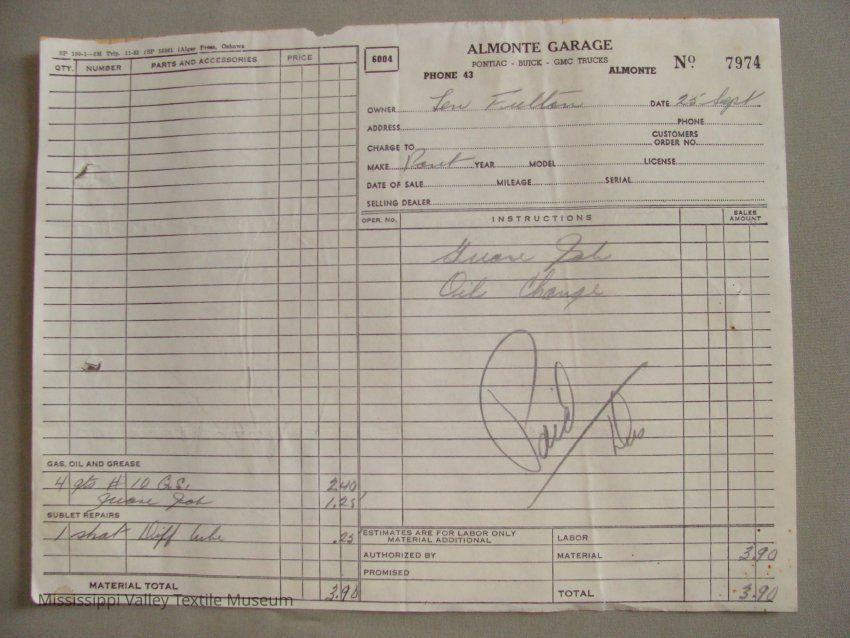 SP 100-1-6M Trip. 11-52 (SP 1636) (Alger Press, Oshawa
QTY. NUMBER PARTS AND ACCESSORIES PRICE
GAS, OIL AND GREASE
4 qts # 10 G.S. 2.40
Grease Job 1.25
SUBLET REPAIRS
1 shot Diff lube .25
MATERIAL TOTAL 3.90
6004
ALMONTE GARAGE
PONTIAC - BUICK - GMC TRUCKS
PHONE 43 ALMONTE
No 7974
OWNER Len Fulton DATE 25 Sept
ADDRESS PHONE
CHARGE TO CUSTOMERS ORDER NO.
MAKE Pont YEAR MODEL LICENSE
DATE OF SALE MILEAGE SERIAL
SELLING DEALER
OPER. No. INSTRUCTIONS SALES AMOUNT
Grease Job
Oil Change
Paid
ESTIMATES ARE FOR LABOR ONLY
MATERIAL ADDITIONAL
LABOR
AUTHORIZED BY MATERIAL 3.90
PROMISED
TOTAL 3.90
Mississippi Valley Textile Museum